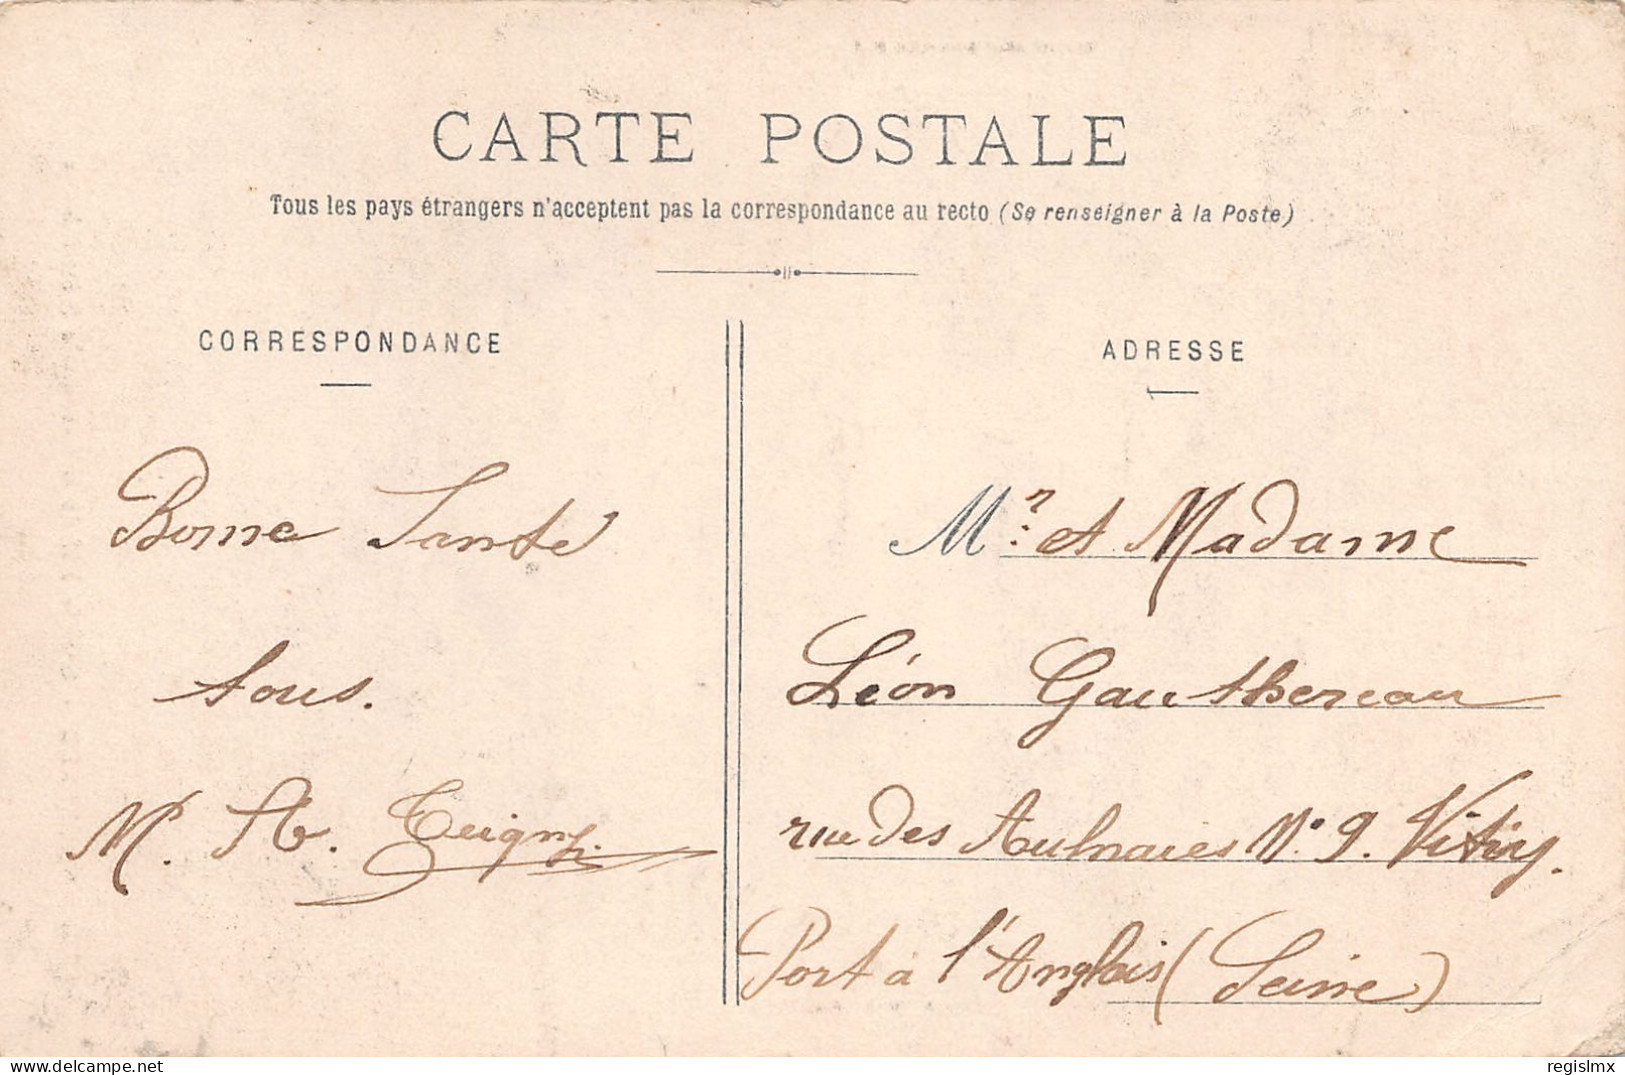 CARTE POSTALE
Tous les pays étrangers n'acceptent pas la correspondance au recto (Se renseigner à la Poste)
CORRESPONDANCE
Bonne Santé
tous.
M. A.
ADRESSE
Mr. et Madame
Léon Gauthereau
rue des Aulnaies N° 9. Vitry.
Port à l'Anglais (Seine)
regislmx